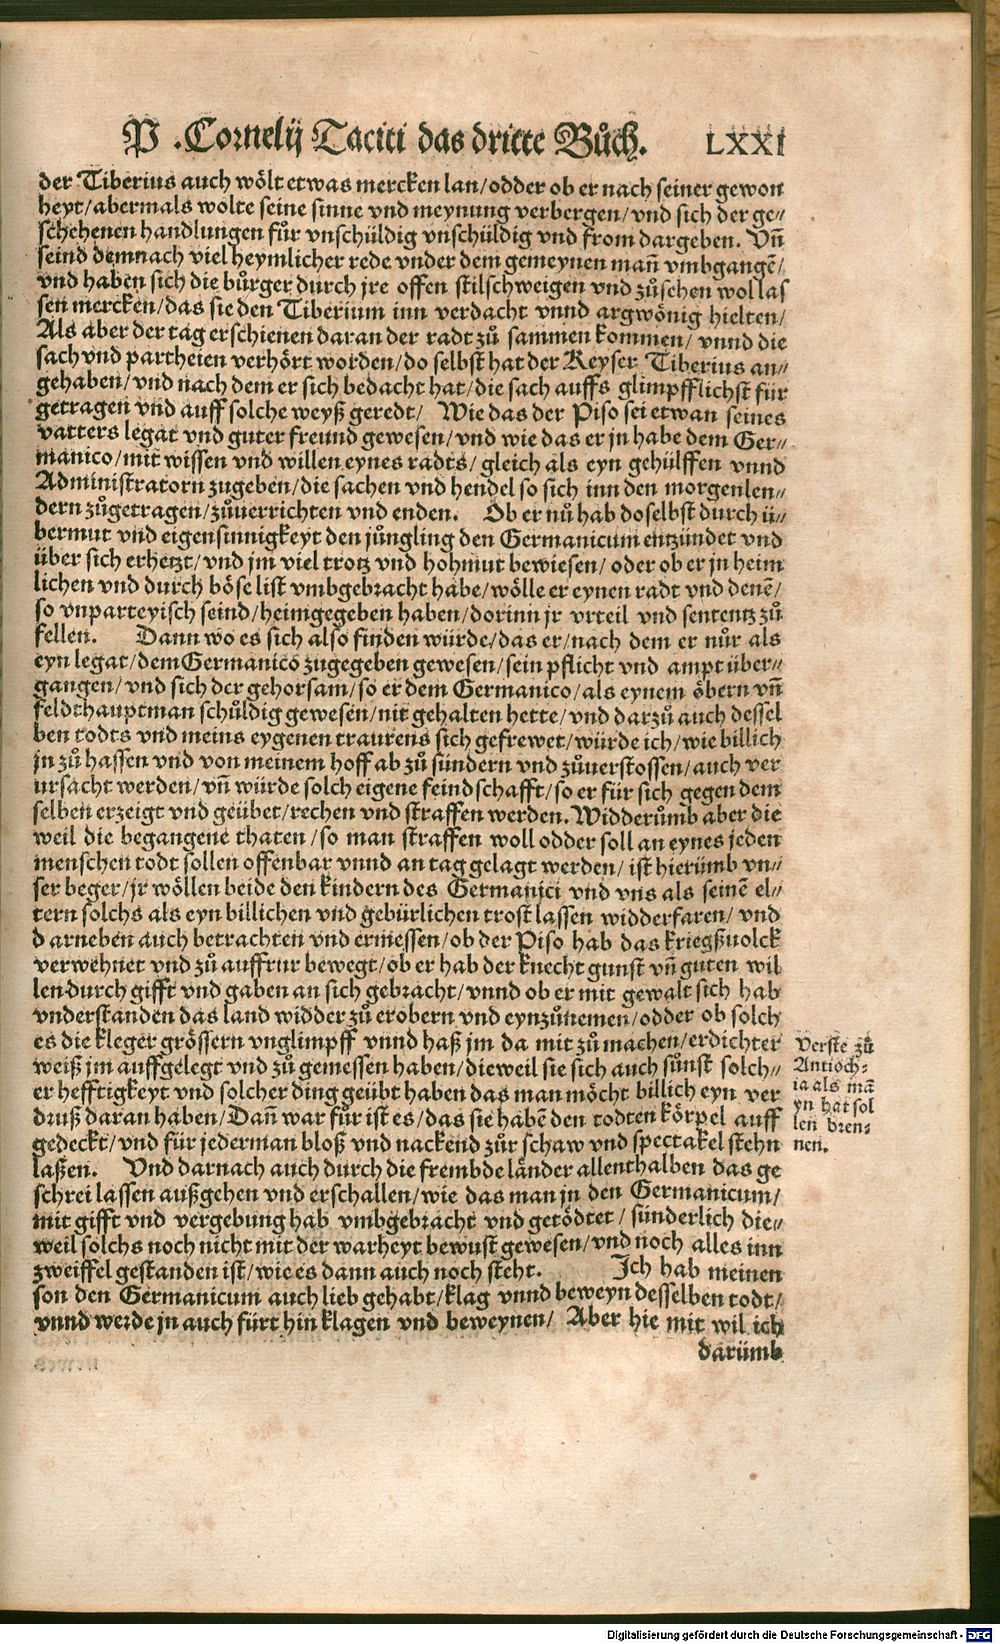 P. Cornelij Taciti das dritte Bůch. LXXI
der Tiberius auch wölt etwas mercken lan/odder ob er nach seiner gewon
heyt/abermals wolte seine sinne vnd meynung verbergen/vnd sich der ge⸗
schehenen handlungen fůr vnschůldig vnschůldig vnd from dargeben. Vñ
seind demnach viel heymlicher rede vnder dem gemeynen mañ vmbgangẽ/
vnd haben sich die bůrger durch jre offen stilschweigen vnd zůsehen wol las
sen mercken/das sie den Tiberium inn verdacht vnnd argwönig hielten/
Als aber der tag erschienen daran der radt zů sammen kommen/ vnnd die
sach vnd partheien verhört worden/do selbst hat der Keyser Tiberius an⸗
gehaben/vnd nach dem er sich bedacht hat/die sach auffs glimpfflichst für
getragen vnd auff solche weyß geredt/ Wie das der Piso sei etwan seines
vatters legat vnd guter freund gewesen/vnd wie das er jn habe dem Ger⸗
manico/mit wissen vnd willen eynes radts/gleich als eyn gehülffen vnnd
Administratorn zugeben/die sachen vnd hendel so sich inn den morgenlen⸗
dern zůgetragen/zůuerrichten vnd enden. Ob er nů hab doselbst durch ü⸗
bermut vnd eigensinnigkeyt den jůngling den Germanicum entzündet vnd
über sich erhetzt/vnd jm viel trotz vnd hohmut bewiesen/oder ob er jn heim
lichen vnd durch böse list vmbgebracht habe/wölle er eynen radt vnd denẽ/
so vnparteyisch seind/heimgegeben haben/dorinn jr vrteil vnd sententz zů
fellen. Dann wo es sich also finden würde/das er/nach dem er nůr als
eyn legat/dem Germanico zugegeben gewesen/sein pflicht vnd ampt über⸗
gangen/vnd sich der gehorsam/so er dem Germanico/als eynem öbern vñ
feldthauptman schůldig gewesen/nit gehalten hette/vnd darzů auch dessel
ben todts vnd meins eygenen traurens sich gefrewet/würde ich/wie billich
jn zů hassen vnd von meinem hoff ab zů sündern vnd zůuerstossen/auch ver
ursacht werden/vñ würde solch eigene feindschafft/so er für sich gegen dem
selben erzeigt vnd geübet/rechen vnd straffen werden. Widderůmb aber die
weil die begangene thaten/so man straffen woll odder soll an eynes jeden
menschen todt sollen offenbar vnnd an tag gelagt werden/ist hierümb vn⸗
ser beger/jr wöllen beide den kindern des Germanici vnd vns als seinẽ el⸗
tern solchs als eyn billichen vnd gebürlichen trost lassen widderfaren/vnd
d arneben auch betrachten vnd ermessen/ob der Piso hab das kriegßuolck
verwehnet vnd zů auffrur bewegt/ob er hab der knecht gunst vñ guten wil
len durch gifft vnd gaben an sich gebracht/vnnd ob er mit gewalt sich hab
vnderstanden das land widder zů erobern vnd eynzůnemen/odder ob solch
es die kleger grössern vnglimpff vnnd haß jm da mit zů machen/erdichter
weiß jm auffgelegt vnd zů gemessen haben/dieweil sie sich auch sůnst solch⸗
er hefftigkeyt vnd solcher ding geübt haben das man möcht billich eyn ver
druß daran haben/Dañ war fůr ist es/das sie habẽ den todten körpel auff
gedeckt/vnd für jederman bloß vnd nackend zůr schaw vnd spectakel stehn
laßen. Vnd darnach auch durch die frembde länder allenthalben das ge
schrei lassen außgehen vnd erschallen/wie das man jn den Germanicum/
mit gifft vnd vergebung hab vmbgebracht vnd getödtet/sünderlich die⸗
weil solchs noch nicht mit der warheyt bewust gewesen/vnd noch alles inn
zweiffel gestanden ist/wie es dann auch noch steht. Ich hab meinen
son den Germanicum auch lieb gehabt/klag vnnd beweyn desselben todt/
vnnd werde jn auch fürt hin klagen vnd beweynen/ Aber hie mit wil ich
darümb
Verste zů
Antioch⸗
ia als mã
yn hat sol
len bren⸗
nen.
Digitalisierung gefördert durch die Deutsche Forschungsgemeinschaft - DFG